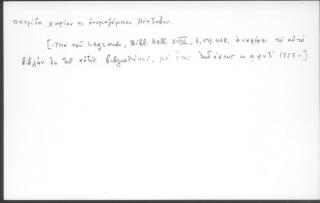 πατρίδα χωρίον τι ὀνομαζόμενον Μέτζοβον.
[-Ὑπὸ τοῦ Legrand, Bibl. Hell. XVIII, 2, σελ. 468, ἀναφέρει τὸ αὐτὸ
βιβλίον ἐκ τῆς αὐτῆς βιβλιοθήκης, μὲ ἔτος ἐκδόσεως αψνζ´ 1757-].